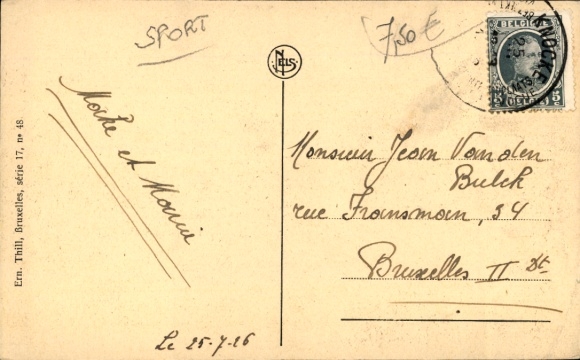 SPORT
7,50 €
NELS
BELGIQUE
5 5
BELGIË
KNOCKE
Ern. Thill, Bruxelles, série 17, n° 48
et Marie
Le 25-7-26
Monsieur Jean Vanden
Bulck
rue Fransman, 34
Bruxelles II Dt